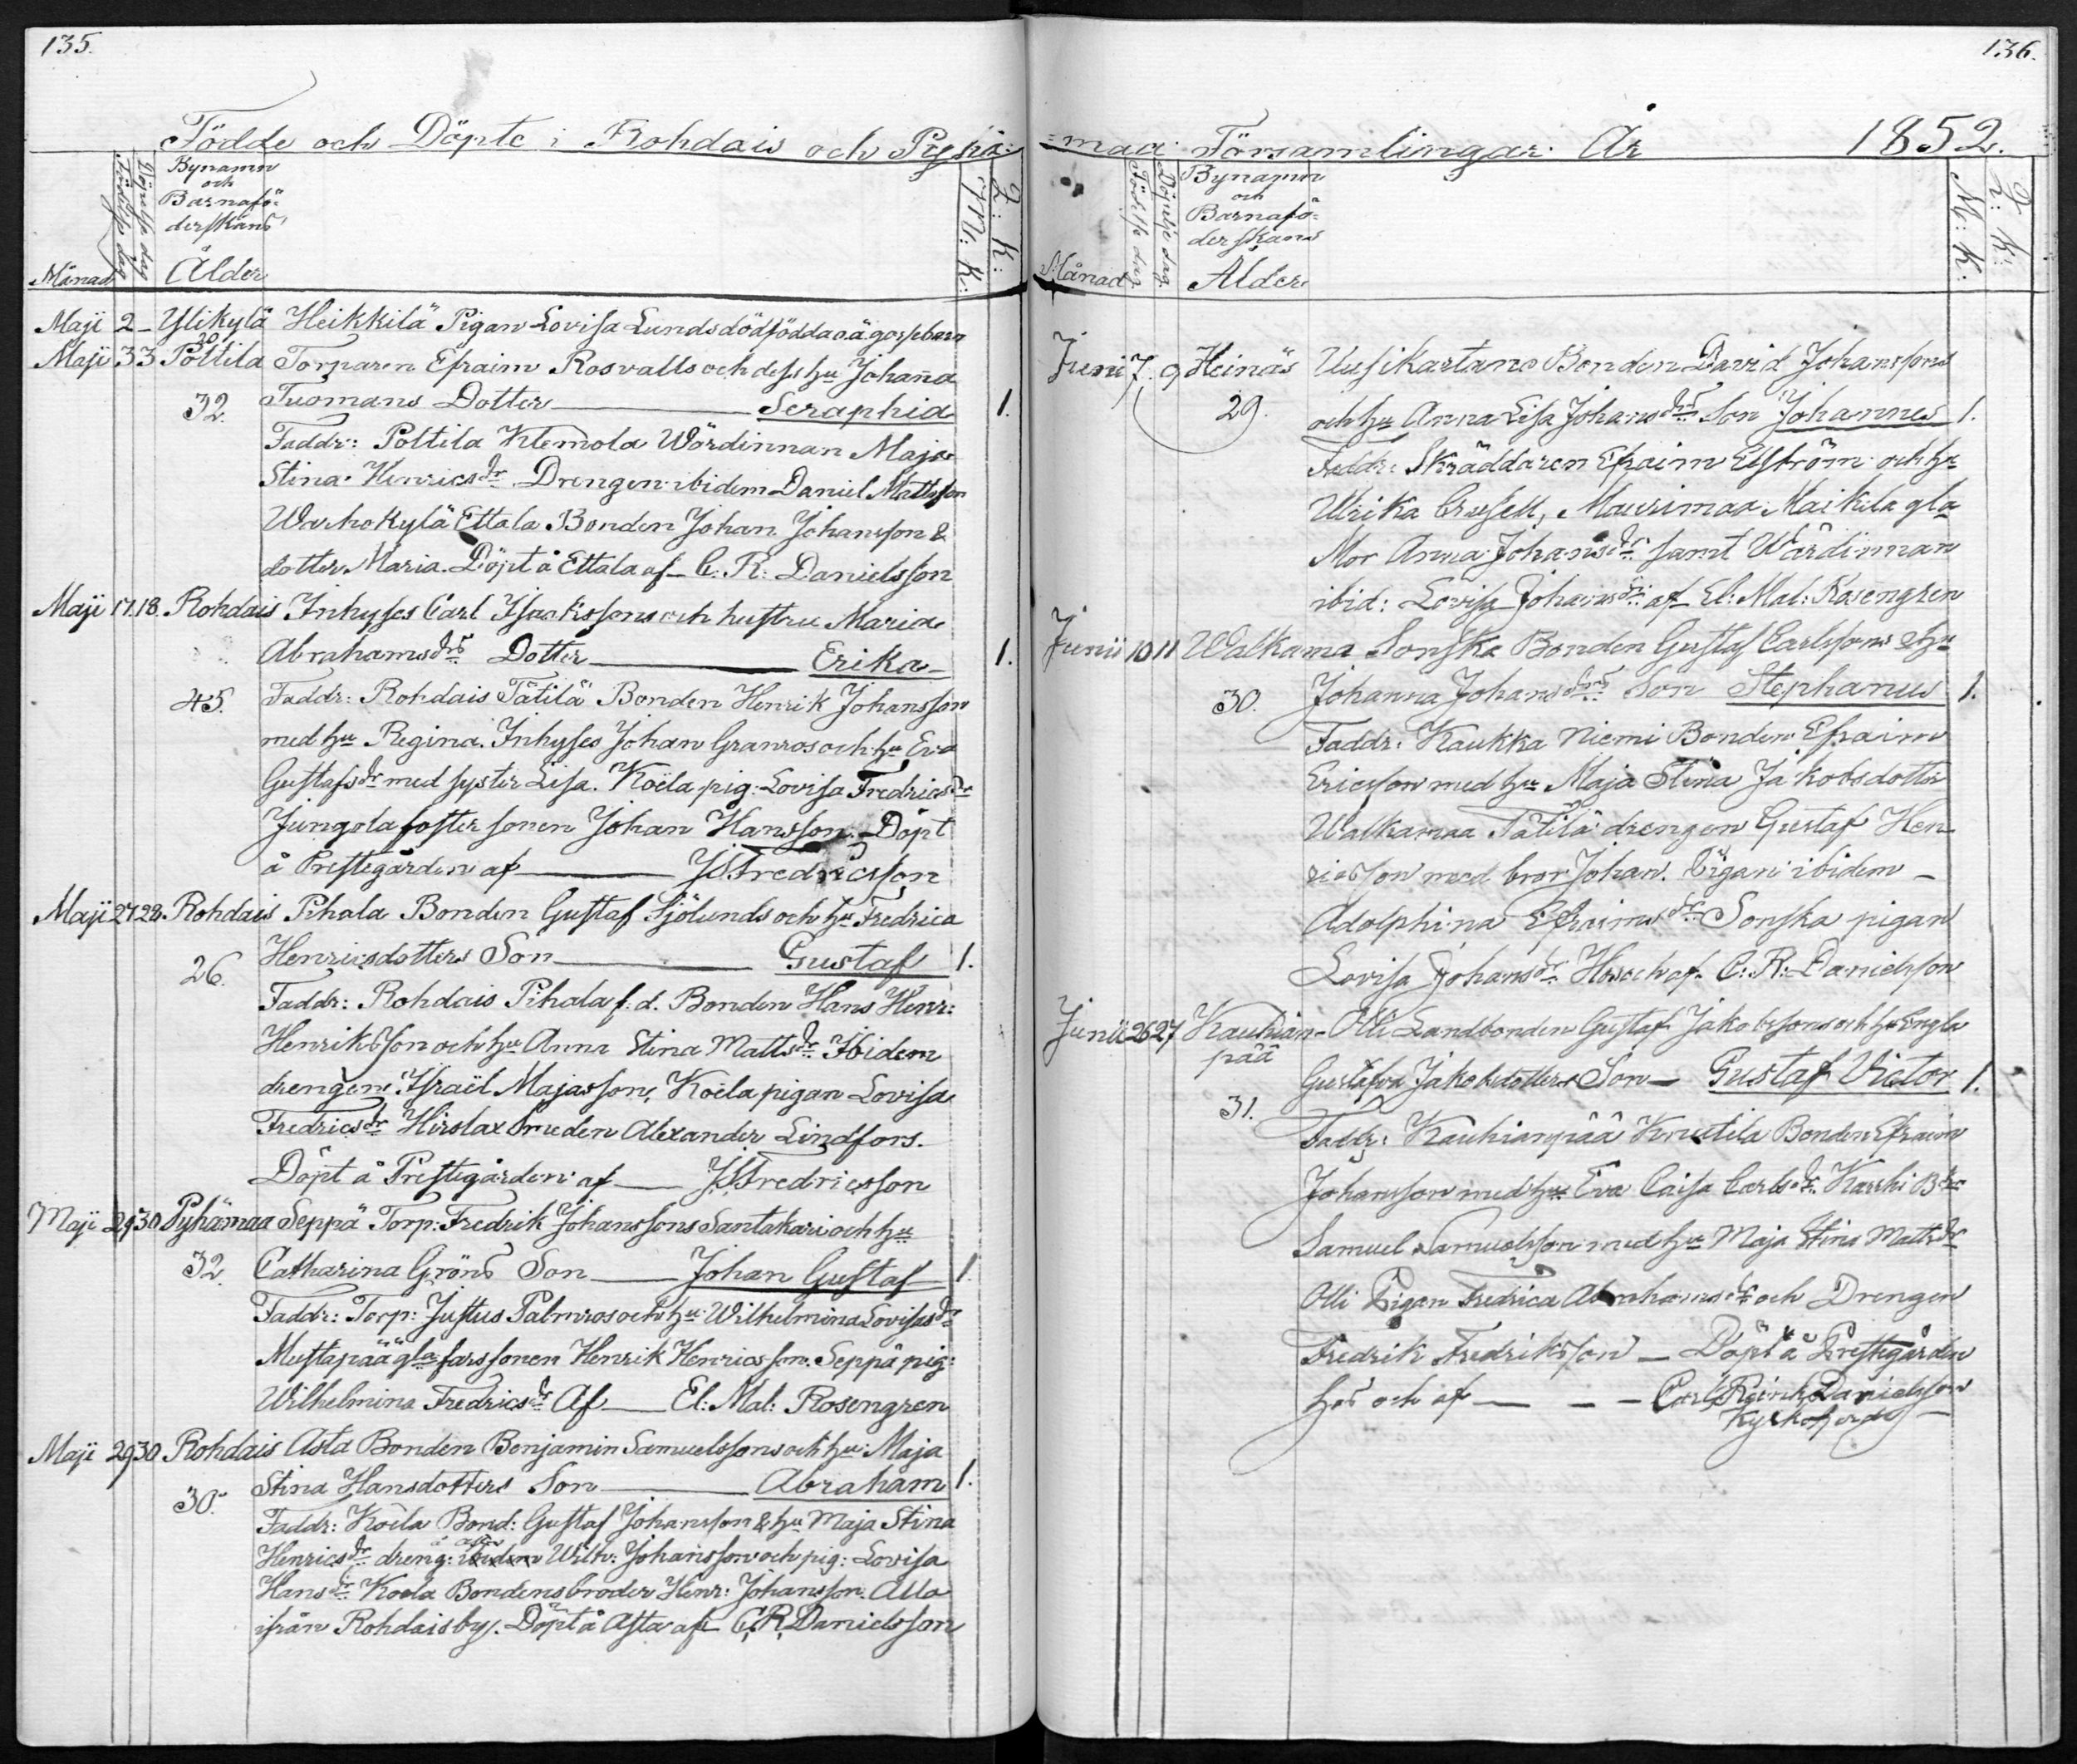 135.
Födde och Döpte i Rohdais och Pyhä-
Månad
Födelse dag
Döpelse dag
Bynamn
och
Barnafö-
derskans
Ålder
M: K:
Q: K:
Maji 2 - Ylikylä Heikkilä Pigan Lovisa Lunds dödfödda o.ä. gossebarn
20
Maji 3 3 Pottila Torparen Efraim Rosvalls och dess hu Johanna
32. Tuomans Dotter Seraphia 1.
Faddr: Poltila Klemola Wärdinnan Maja
Stina Henricsdr Drengen ibidem Daniel Mattsson
Warhokylä Ettala Bonden Johan Johansson &
dotter Maria. Döpt å Ettala af C. R: Danielsson
Maji 17.18. Rohdais Inhyses Carl Isacksons och hustru Maria
Abrahamsdrs Dotter Erika 1.
45. Faddr: Rohdais Tätilä Bonden Henrik Johansson
med hu Regina. Inhyses Johan Granros och hu Eva
Gustafsdr med syster Lisa. Koëla pig: Lovisa Fredricsdr
Jungola foster sonen Johan Hansson. Döpt
å Prestegården af JFredricsson
Maji 27.28. Rohdais Pihala Bonden Gustaf Sjölunds och hu Fredrica
26. Henricsdotters Son Gustaf 1.
Faddr: Rohdais Pihala f.d. Bonden Hans Henr:
Henriksson och hu Anna Stina Mattsdr Ibidem
drengen Israël Majasson, Koëla pigan Lovisa
Fredricsdr Hirslax Smeden Alexander Lindfors.
Döpt å Prestegården af JFredricsson
Maji 29 30 Pyhämaa Seppä Torp: Fredrik Johanssons Santakari och hu
32. Catharina Gröns Son Johan Gustaf 1.
Faddr: Torp: Justus Palmros och hu Wilhelmina Lovisasdr
Mustapää gla farssonen Henrik Henricsson. Seppä pig:
Wilhelmina Fredricsdr Af El: Mal: Rosengren
Maji 29 30 Rohdais Asta Bonden Benjamin Samuelssons och hu Maja
30. Stina Hansdotters Son Abraham 1.
Faddr: Koëla Bond: Gustaf Johansson & hu Maja Stina
Henricsdr dreng: Wilh: Johansson och pig: Lovisa
Hansdr Koela Bondens broder Henr: Johansson. Alla
ifrån Rohdais by. Döpt å Asta af C, R, Danielsson
136.
=maa Församlingar År 1852.
Månad
Födelse dag
Döpelse dag
Bynamn
och
Barnafö-
derskans
Ålder
M: K:
Q: K:
Juni 7. 9 Heinäs Uusikartano Bonden David Johanssons
29. och hu Anna Lisa Johansdrs Son Johannes 1.
Faddr: Skräddaren Efraim Elström och hu
Ulrika Crusell, Maurimaa Maikila gla
Mor Anna Johansdr samt Wärdinnan
ibid: Lovisa Johansdr af El: Mal: Rosengren
Junii 10 11 Walkama Sonska Bonden Gustaf Carlssons & hu
30. Johanna Johansdrs Son Stephanus 1.
Faddr: Kaukka Niemi Bonden Efraim
Ericsson med hu Maja Stina Jakobsdotter
Walkamaa Tätilä drengen Gustaf Hen-
ricsson med bror Johan. Pigan ibidem
Adolphina Efraimsdr Sonska pigan
Lovisa Johansdr Hos och af C: R: Danielsson
Junii 26 27 Kauhian- Olli Landbonden Gustaf Jakobssons och hu Engla
pää
Gustafva Jakobsdotters Son Gustaf Victor 1.
31.
Faddr: Kauhianpää Knutila Bonden Efraim
Johansson med hu Eva Caisa Carlsdr. Karhi
Samuel Samuelsson med hu Maja Stina Mattsdr
Olli Pigan Fredrica Abrahamsdr och Drengen
Fredrik Fredriksson Döpt å Prestegården
hos och af Carl Reinh. Danielsson
Kyrkoherde